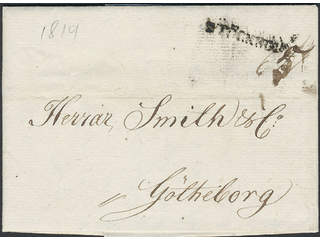 1819
STOCKHOLM
Herrar Smith & Co:
Götheborg